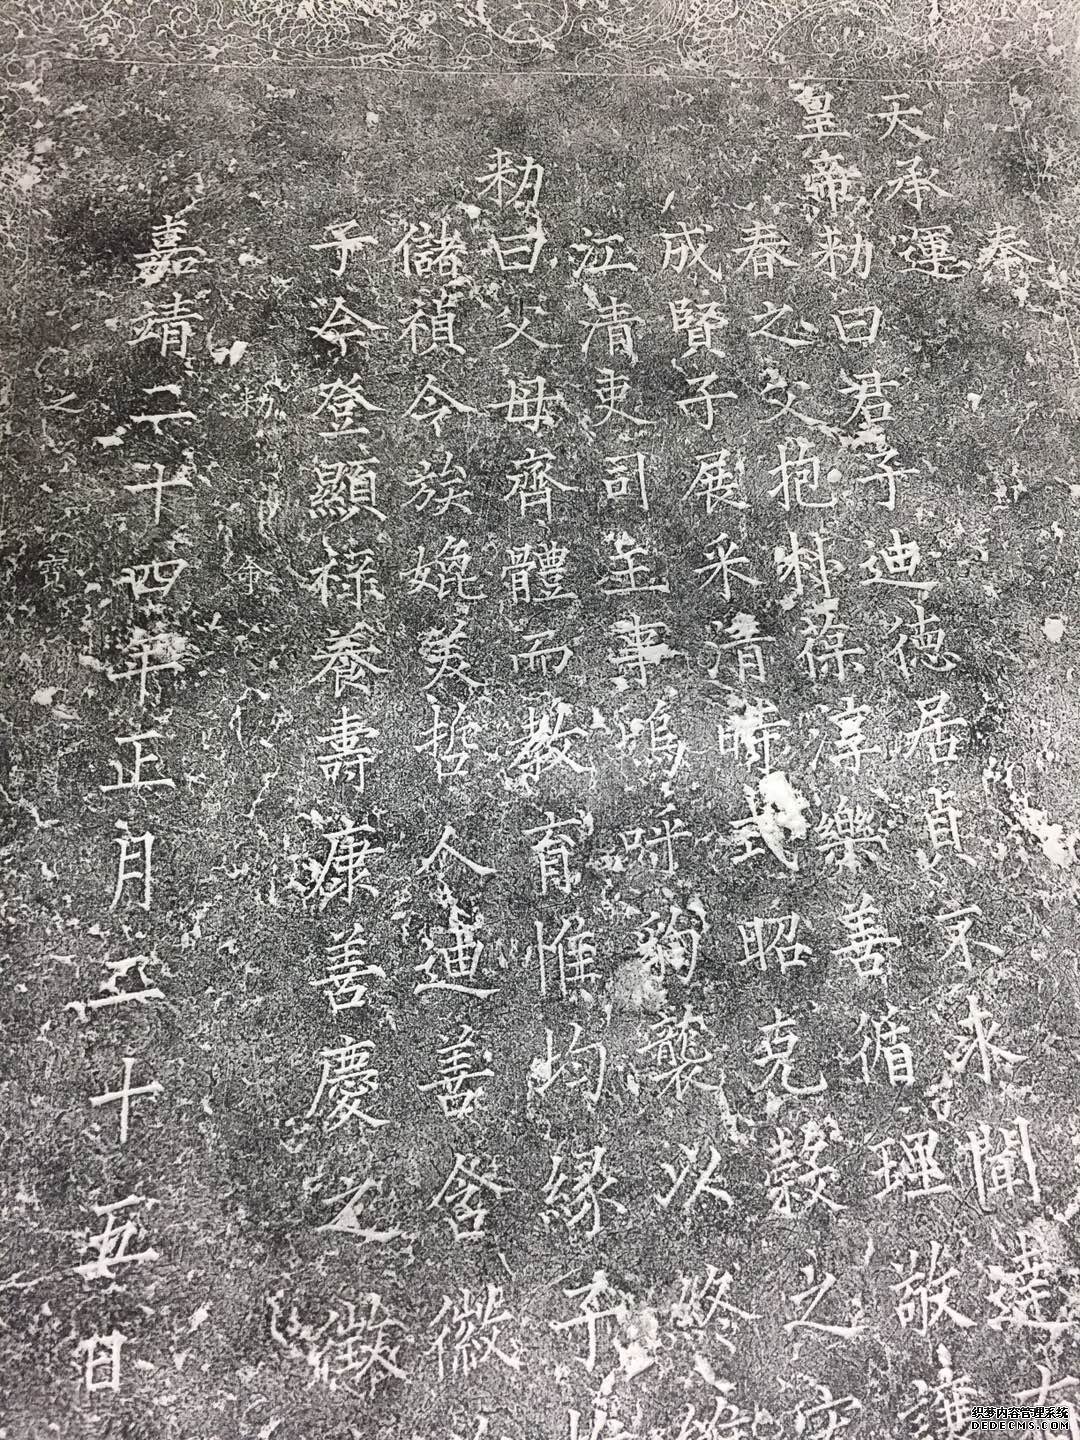 奉
天承運
皇帝勑曰君子迪德居貞不求聞達
春之父抱朴葆淳樂善循理敬謹
成賢子展采清時式昭克穀之
江清吏司主事嗚呼 襲以終
勑曰父母齊體而教育惟均緣
儲禎令族媲美哲人迪善含徽
予今登顯祿養壽康善慶之徵
勑命
嘉靖二十四年正月二十五日
之寶
织梦内容管理系统
DEDECMS.COM